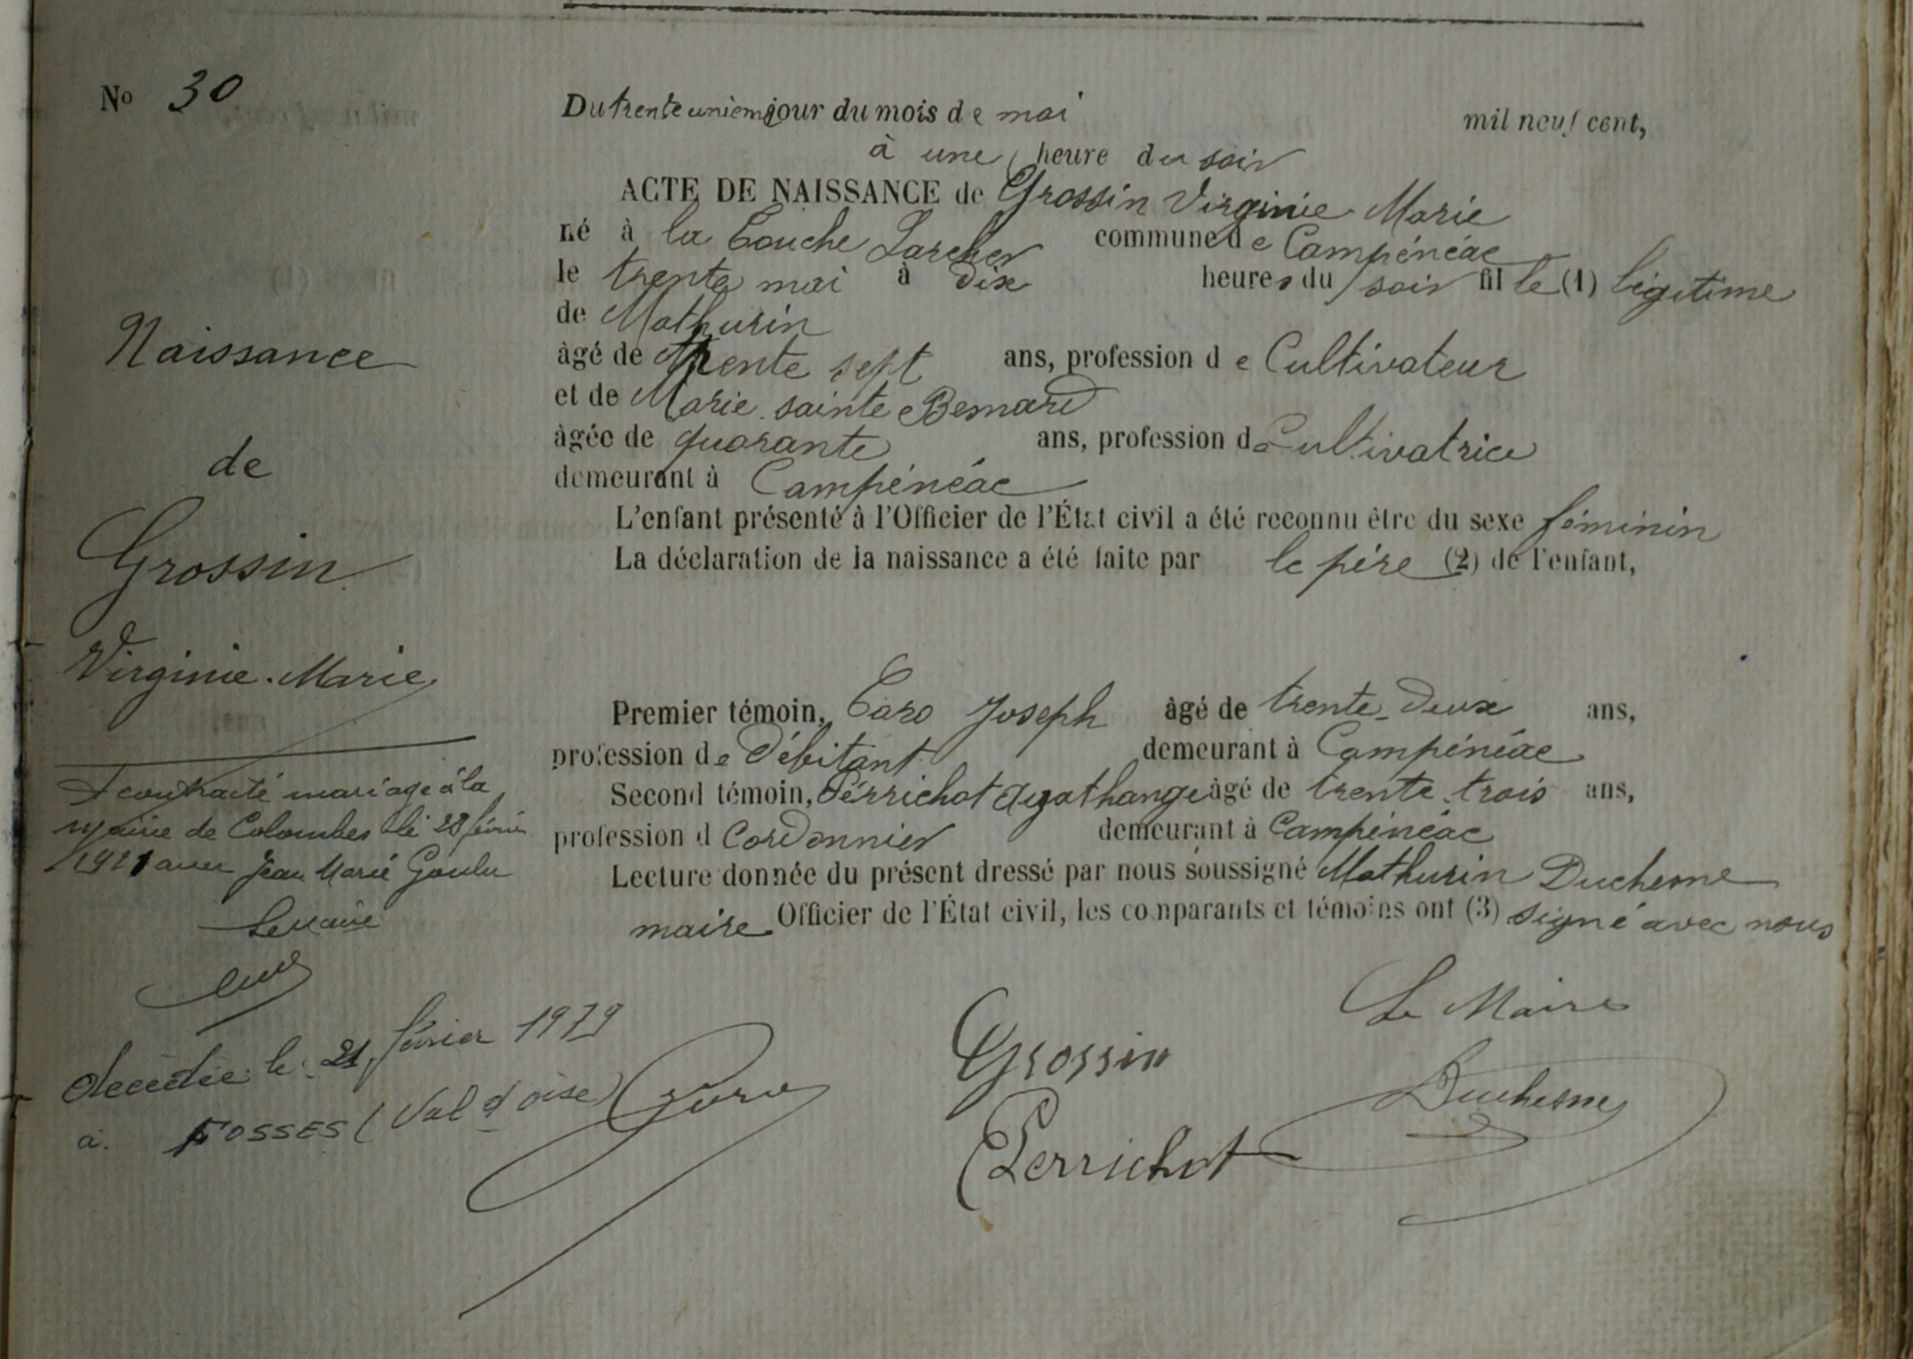 No 30
Naissance
de
Grossin
Virginie. Marie
A contracté mariage à la
mairie de Colombes le 28 février
1921 avec Jean Marie Goulu
Le Maire
Décédée le 21 février 1979
à FOSSES (Val d'oise)
Du trente unièm jour du mois de mai mil neuf cent,
à une heure du soir
ACTE DE NAISSANCE de Grossin Virginie Marie
né à la Touche Larcher commune de Campénéac
le trente mai à dix heures du soir fille (1) légitime
de Mathurin
âgé de trente sept ans, profession de Cultivateur
et de Marie sainte Besnard
âgée de quarante ans, profession de Cultivatrice
demeurant à Campénéac
L'enfant présenté à l'Officier de l'État civil a été reconnu être du sexe féminin
La déclaration de la naissance a été faite par le père (2) de l'enfant,
Premier témoin, Caro Joseph âgé de trente-deux ans,
profession de Débitant demeurant à Campénéac
Second témoin, Pérrichot Agathange âgé de trente-trois ans,
profession d Cordonnier demeurant à Campénéac
Lecture donnée du présent dressé par nous soussigné Mathurin Duchesne
maire Officier de l'État civil, les comparants et témoins ont (3) signé avec nous
Le Maire
Grossin
Duchesne
Caro
Perrichot